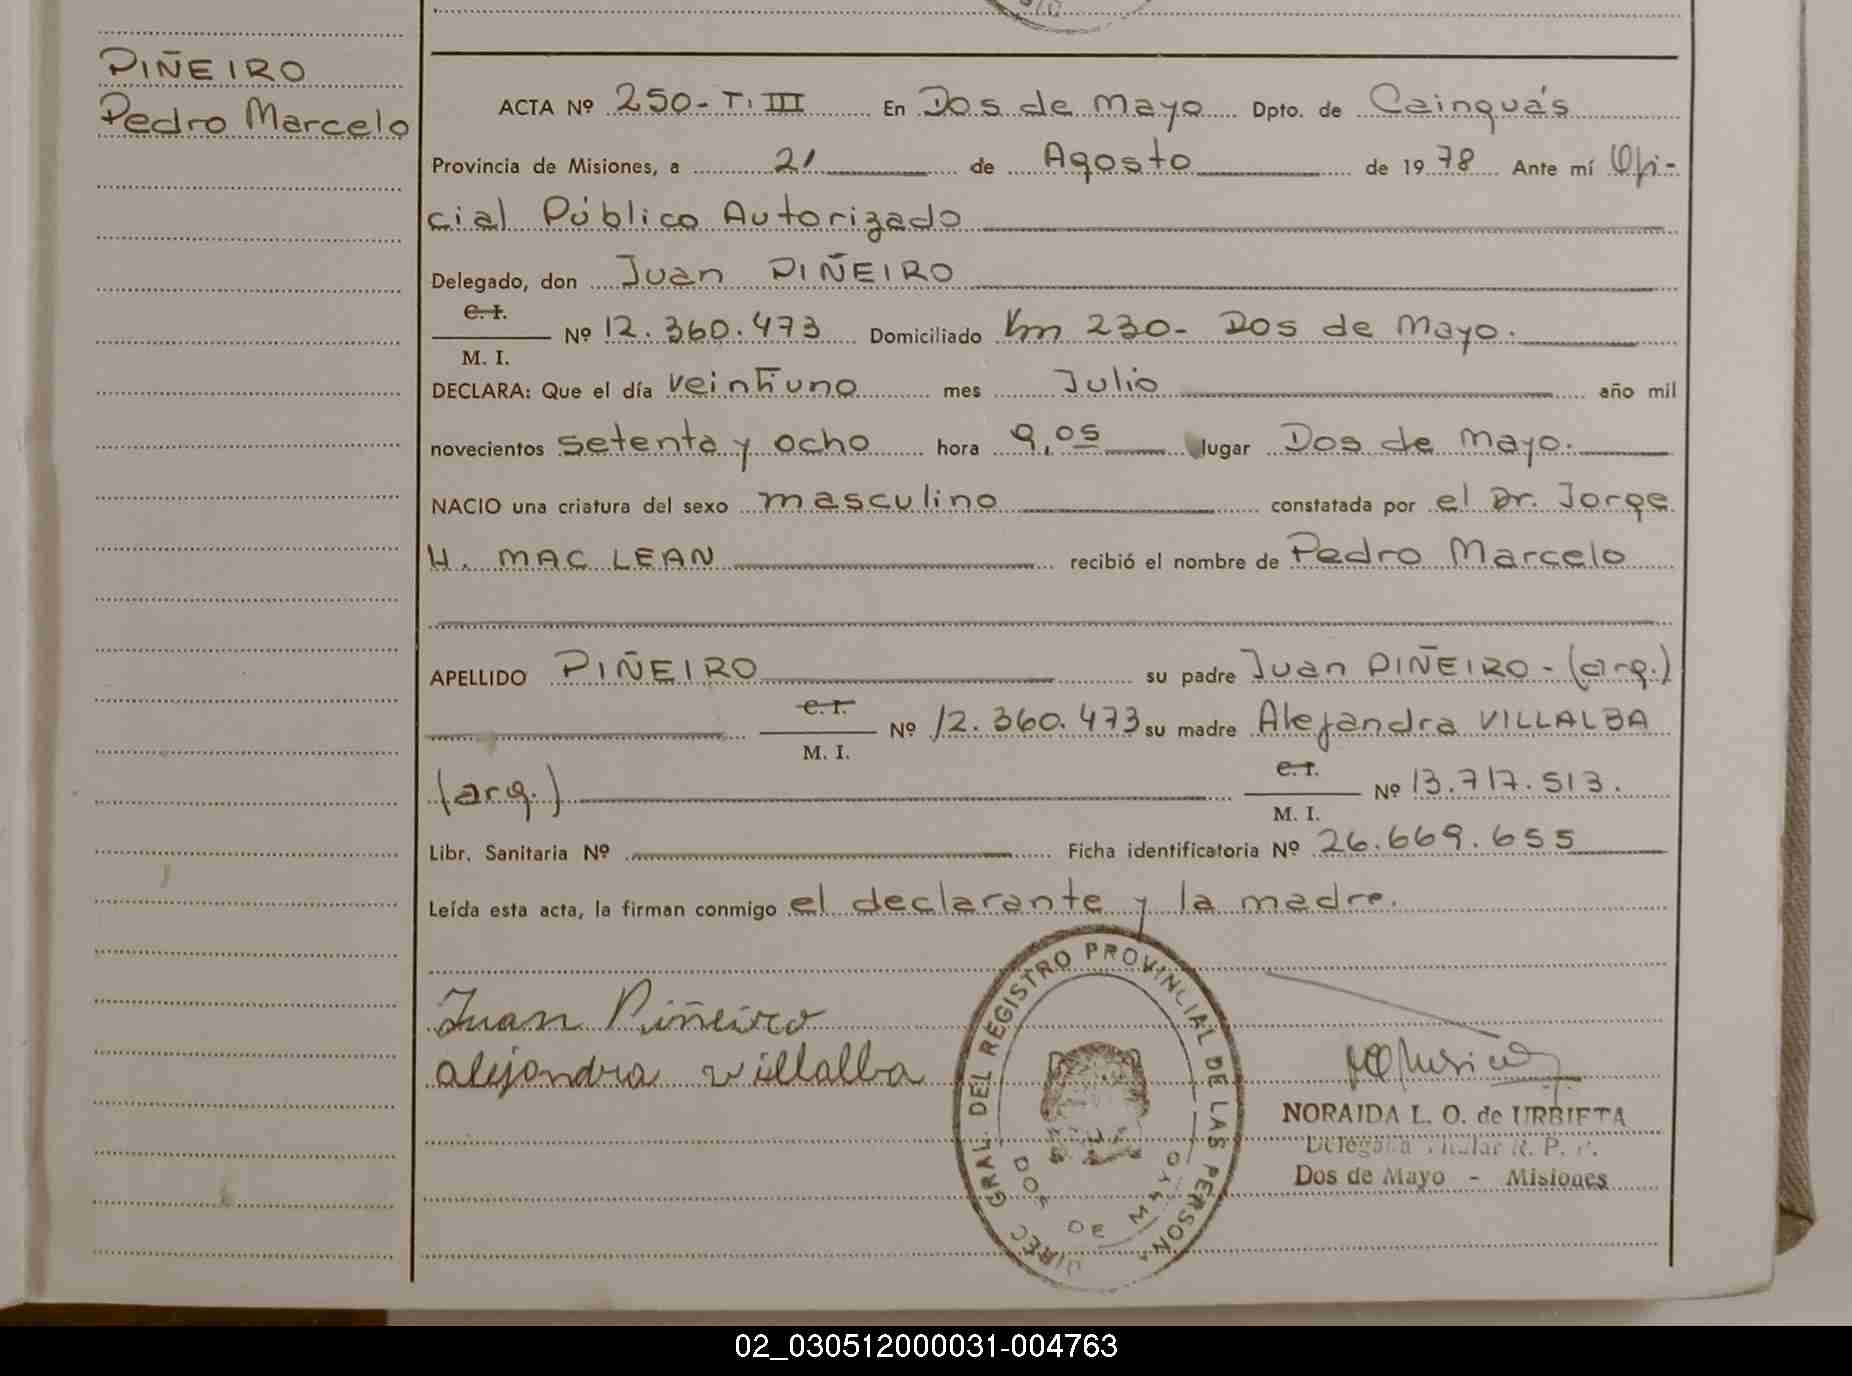 PIÑEIRO
Pedro Marcelo
ACTA Nº 250- T. III En Dos de Mayo Dpto. de Cainguás
Provincia de Misiones, a 21 de Agosto de 1978 Ante mí Ofi-
cial Público Autorizado
Delegado, don Juan PIÑEIRO
C. I.
M. I. Nº 12.360.473 Domiciliado Km 230- Dos de Mayo.
DECLARA: Que el día veintiuno mes Julio año mil
novecientos setenta y ocho hora 9,05 lugar Dos de Mayo.
NACIO una criatura del sexo masculino constatada por el Dr. Jorge
H. MAC LEAN recibió el nombre de Pedro Marcelo
APELLIDO PIÑEIRO su padre Juan PIÑEIRO - (arg.)
C. I.
M. I. Nº 12.360.473 su madre Alejandra VILLALBA
(arg.) C. I.
M. I. Nº 13.717.513.
Libr. Sanitaria Nº Ficha identificatoria Nº 26.669.655
Leída esta acta, la firman conmigo el declarante y la madre.
Juan Piñeiro
alejandra villalba
DIREC GRAL. DEL REGISTRO PROVINCIAL DE LAS PERSONA
DOS DE MAYO
NORAIDA L. O. de URBIETA
Delegada Titular R. P. P.
Dos de Mayo - Misiones
02_030512000031-004763